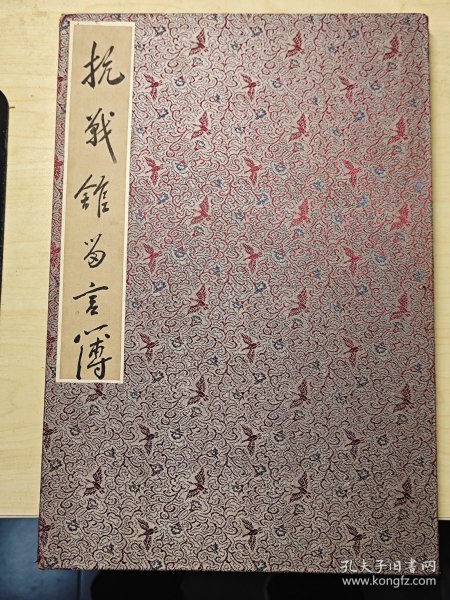 抗战馆留言簿
孔夫子旧书网
www.kongfz.com